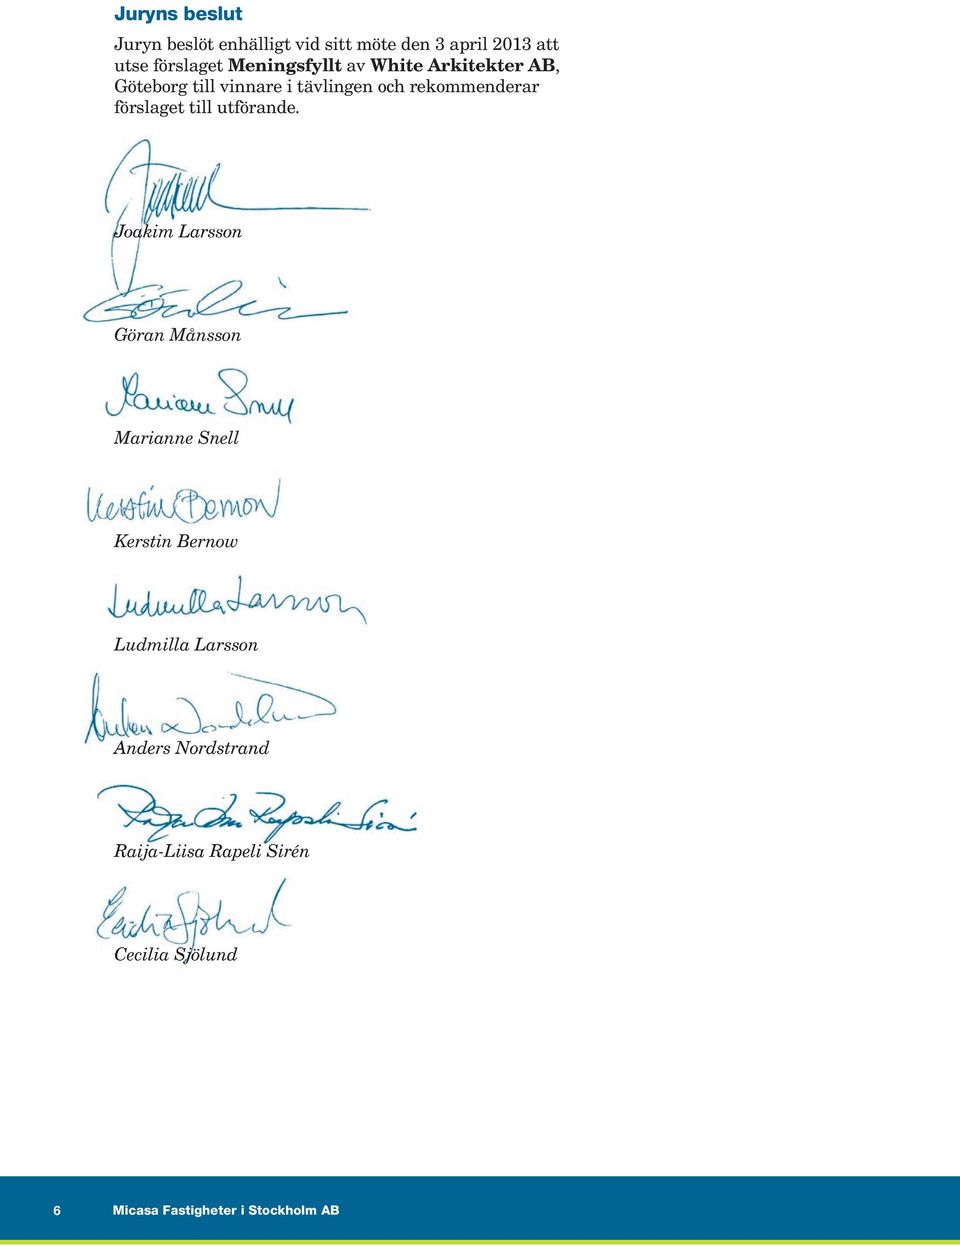 Juryns beslut
Juryn beslöt enhälligt vid sitt möte den 3 april 2013 att
utse förslaget Meningsfyllt av White Arkitekter AB,
Göteborg till vinnare i tävlingen och rekommenderar
förslaget till utförande.
Joakim Larsson
Göran Månsson
Marianne Snell
Marianne Snell
Kerstin Bernow
Kerstin Bernow
Ludmilla Larsson
Ludmilla Larsson
Anders Nordstrand
Raija-Liisa Rapeli Sirén
Cecilia Sjölund
6 Micasa Fastigheter i Stockholm AB